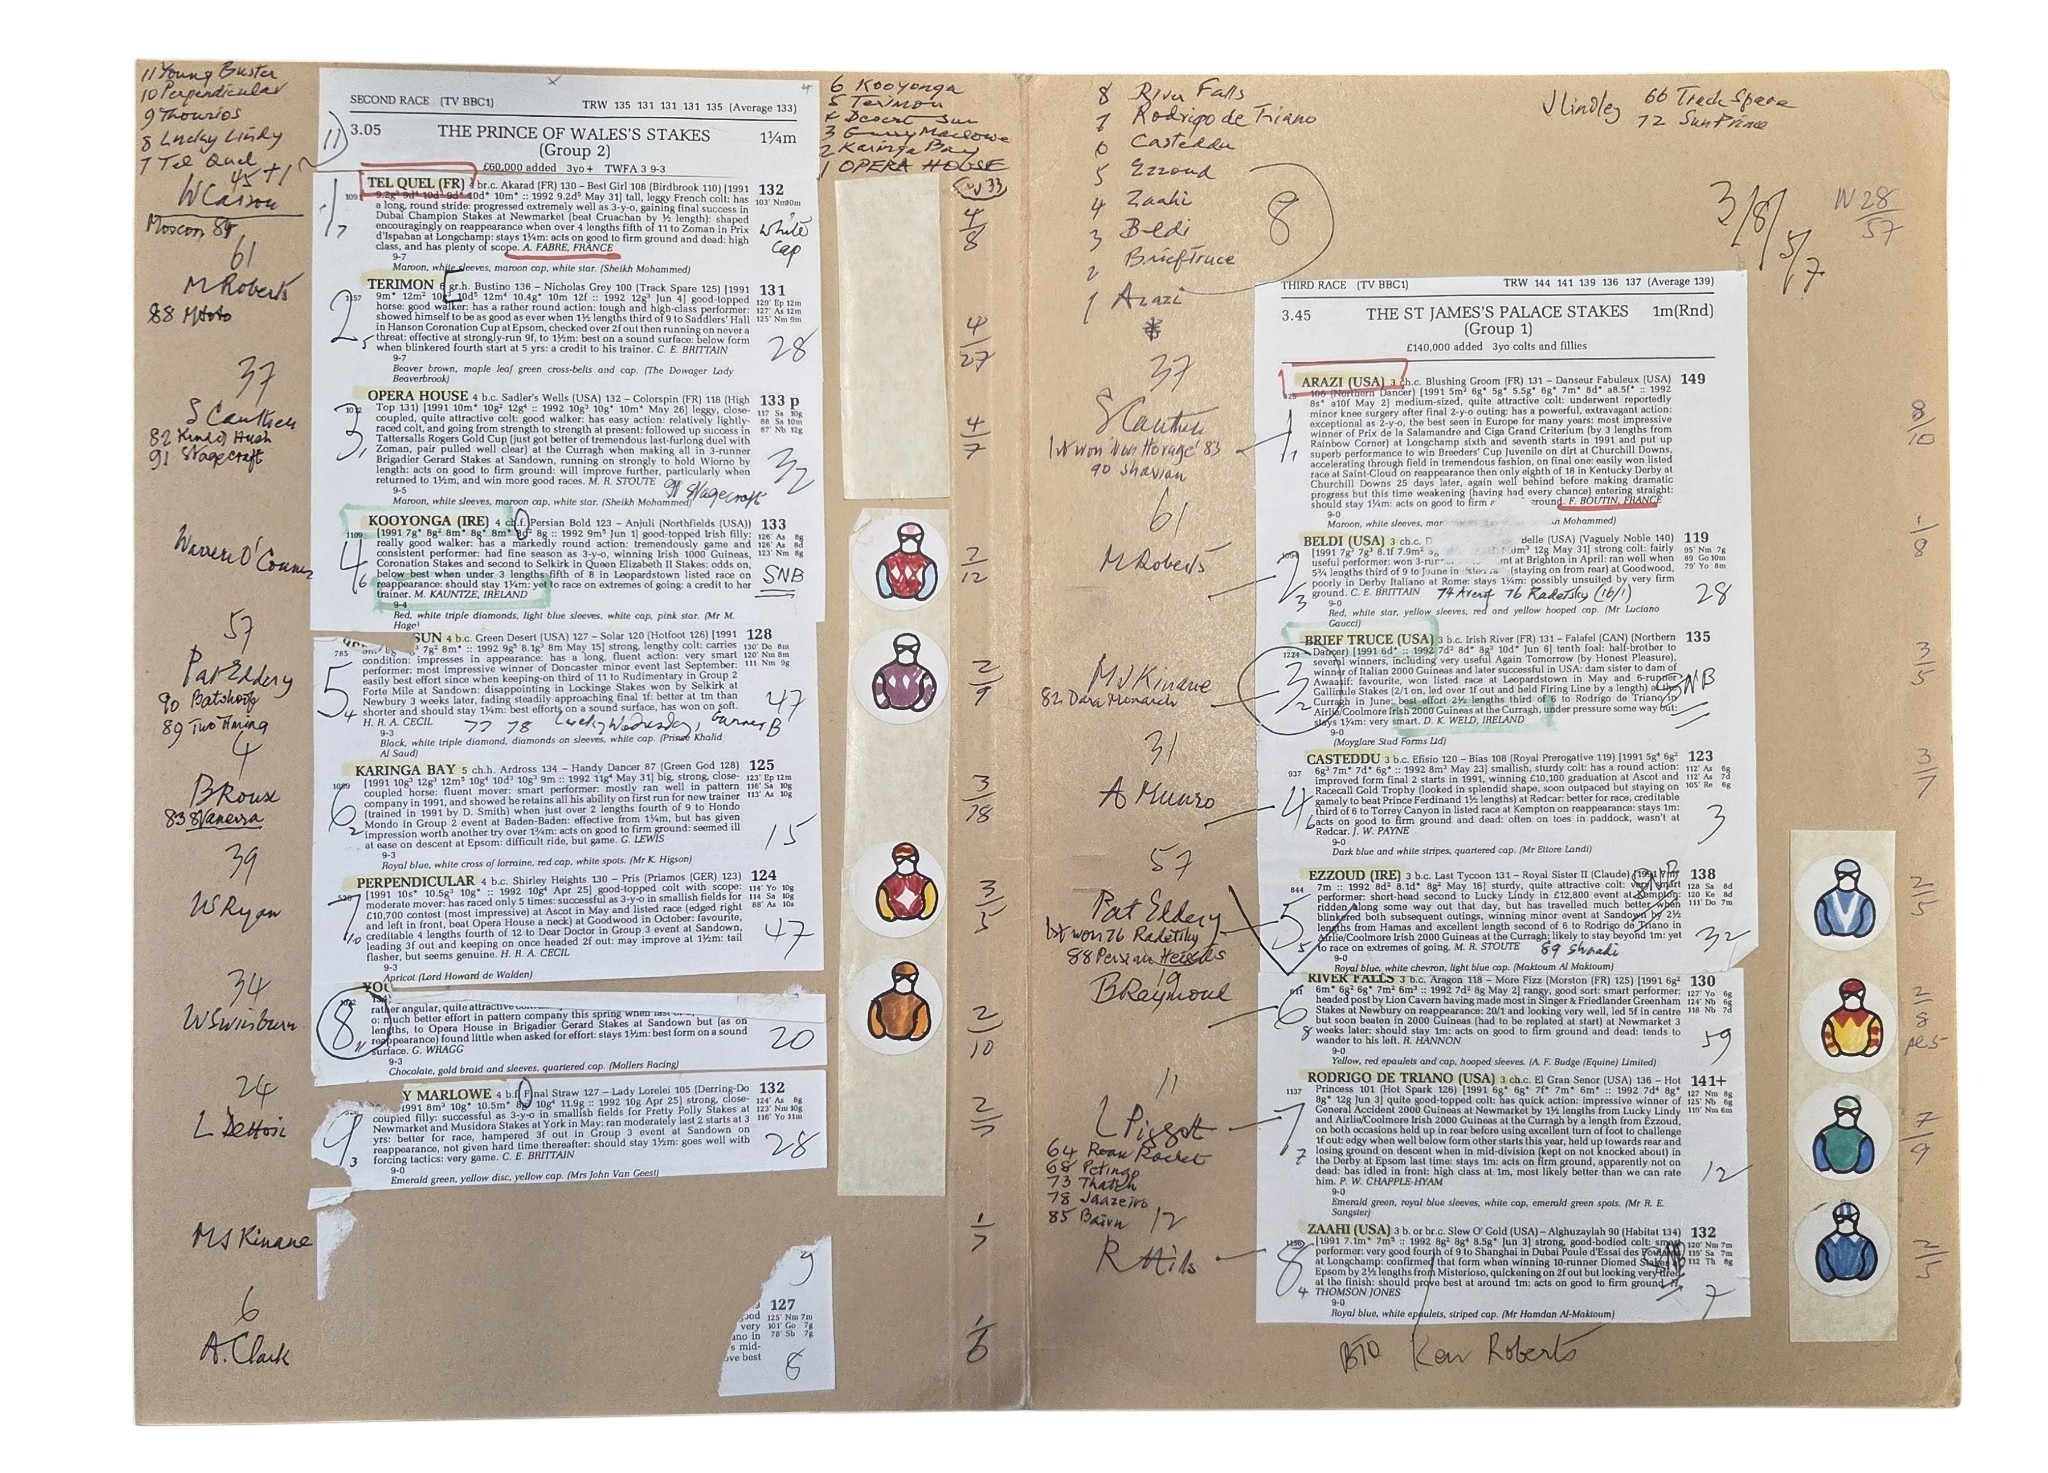 11 Young Buster
10 Perpendicular
9 Thourios
8 Lucky Lindy
7 Tel Quel
45 +1
W Carson
61
M Roberts
88 Mtoto
37
S Cauthen
82 Kind of Hush
91 Stagecraft
Warren O'Connor
57
Pat Eddery
90 Batshoof
89 Two Timing
4
B Roux
39
W Ryan
34
W Swinburn
24
L Dettori
MJ Kinane
6
A. Clark
SECOND RACE (TV BBC1) TRW 135 131 131 131 135 (Average 133)
11
3.05 THE PRINCE OF WALES'S STAKES 1¼m
(Group 2)
£60,000 added 3yo+ TWFA 3 9-3
1
7
TEL QUEL (FR) 4 br.c. Akarad (FR) 130 – Best Girl 108 (Birdbrook 110) [1991 132
a long, round stride: progressed extremely well as 3-y-o, gaining final success in
Dubai Champion Stakes at Newmarket (beat Cruachan by ½ length): shaped
encouragingly on reappearance when over 4 lengths fifth of 11 to Zoman in Prix
d'Ispahan at Longchamp: stays 1¼m: acts on good to firm ground and dead: high
class, and has plenty of scope. A. FABRE, FRANCE
White cap
9-7
Maroon, white sleeves, maroon cap, white star. (Sheikh Mohammed)
2
5
TERIMON 6 gr.h. Bustino 136 – Nicholas Grey 100 (Track Spare 125) [1991 131
horse: good walker: has a rather round action: tough and high-class performer:
showed himself to be as good as ever when 1½ lengths third of 9 to Saddlers' Hall
in Hanson Coronation Cup at Epsom, checked over 2f out then running on never a
threat: effective at strongly-run 9f, to 1½m: best on a sound surface: below form
when blinkered fourth start at 5 yrs: a credit to his trainer. C. E. BRITTAIN
28
9-7
Beaver brown, maple leaf green cross-belts and cap. (The Dowager Lady
Beaverbrook)
3
1
OPERA HOUSE 4 b.c. Sadler's Wells (USA) 132 – Colorspin (FR) 118 (High 133 p
Top 131) [1991 10m* 10g² 12g⁴ :: 1992 10g³ 10g* 10m* May 26] leggy, close-
coupled, quite attractive colt: good walker: has easy action: relatively lightly-
raced colt, and going from strength to strength at present: followed up success in
Tattersalls Rogers Gold Cup (just got better of tremendous last-furlong duel with
Zoman, pair pulled well clear) at the Curragh when making all in 3-runner
Brigadier Gerard Stakes at Sandown, running on strongly to hold Wiorno by
length: acts on good to firm ground: will improve further, particularly when
returned to 1½m, and win more good races. M. R. STOUTE
91 Stagecraft
32
9-5
Maroon, white sleeves, maroon cap, white star. (Sheikh Mohammed)
4
6
KOOYONGA (IRE) 4 ch.f. Persian Bold 123 – Anjuli (Northfields (USA)) 133
[1991 7g* 8g² 8m* 8g* 8m⁶ 8g² :: 1992 9m⁵ Jun 1] good-topped Irish filly:
really good walker: has a markedly round action: tremendously game and
consistent performer: had fine season as 3-y-o, winning Irish 1000 Guineas,
Coronation Stakes and second to Selkirk in Queen Elizabeth II Stakes: odds on,
below best when under 3 lengths fifth of 8 in Leopardstown listed race on
reappearance: should stay 1¼m: yet to race on extremes of going: a credit to her
trainer. M. KAUNTZE, IRELAND
SNB
9-4
Red, white triple diamonds, light blue sleeves, white cap, pink star. (Mr M.
Haga)
5
4
SUN 4 b.c. Green Desert (USA) 127 – Solar 120 (Hotfoot 126) [1991 128
condition: impresses in appearance: has a long, fluent action: very smart
performer: most impressive winner of Doncaster minor event last September:
easily best effort since when keeping-on third of 11 to Rudimentary in Group 2
Forte Mile at Sandown: disappointing in Lockinge Stakes won by Selkirk at
Newbury 3 weeks later, fading steadily approaching final 1f: better at 1m than
shorter and should stay 1¼m: best efforts on a sound surface, has won on soft.
H. R. A. CECIL 77 78 Lucky Wednesday, Gunner B
47
9-3
Black, white triple diamond, diamonds on sleeves, white cap. (Prince Khalid
Al Saud)
6
2
KARINGA BAY 5 ch.h. Ardross 134 – Handy Dancer 87 (Green God 128) 125
[1991 10g³ 12g³ 12m⁵ 10g⁴ 10d³ 10g³ 9m :: 1992 11g⁴ May 31] big, strong, close-
coupled horse: fluent mover: smart performer: mostly ran well in pattern
company in 1991, and showed he retains all his ability on first run for new trainer
(trained in 1991 by D. Smith) when just over 2 lengths fourth of 9 to Hondo
Mondo in Group 2 event at Baden-Baden: effective from 1¼m, but has given
impression worth another try over 1¾m: acts on good to firm ground: seemed ill
at ease on descent at Epsom: difficult ride, but game. G. LEWIS
15
9-3
Royal blue, white cross of lorraine, red cap, white spots. (Mr K. Higson)
7
10
PERPENDICULAR 4 b.c. Shirley Heights 130 – Pris (Priamos (GER) 123) 124
[1991 10s* 10.5g² 10g* :: 1992 10g⁴ Apr 25] good-topped colt with scope:
moderate mover: has raced only 5 times: successful as 3-y-o in smallish fields for
£10,700 contest (most impressive) at Ascot in May and listed race (edged right
and left in front, beat Opera House a neck) at Goodwood in October: favourite,
creditable 4 lengths fourth of 12 to Dear Doctor in Group 3 event at Sandown,
leading 3f out and keeping on once headed 2f out: may improve at 1½m: tail
flasher, but seems genuine. H. R. A. CECIL
47
9-3
Apricot (Lord Howard de Walden)
YOU
8
11
rather angular, quite attractive
o: much better effort in pattern company this spring when
lengths, to Opera House in Brigadier Gerard Stakes at Sandown but (as on
reappearance) found little when asked for effort: stays 1½m: best form on a sound
surface. G. WRAGG
20
9-3
Chocolate, gold braid and sleeves, quartered cap. (Mollers Racing)
9
3
Y MARLOWE 4 b.f. Final Straw 127 – Lady Lorelei 105 (Derring-Do 132
coupled filly: successful as 3-y-o in smallish fields for Pretty Polly Stakes at
Newmarket and Musidora Stakes at York in May: ran moderately last 2 starts at 3
yrs: better for race, hampered 3f out in Group 3 event at Sandown on
reappearance, not given hard time thereafter: should stay 1¼m: goes well with
forcing tactics: very game. C. E. BRITTAIN
28
9-0
Emerald green, yellow disc, yellow cap. (Mrs John Van Geest)
9
127
6
6 Kooyonga
5 Terimon
4 Desert Sun
3 Gussy Marlowe
2 Karinga Bay
1 OPERA HOUSE
4/8
4/27
4/7
2/12
2/9
3/78
3/5
2/10
1/7
1/6
8 River Falls
7 Rodrigo de Triano
6 Casteddu
5 Ezzoud
4 Zaahi
3 Beldi
2 Brief Truce
1 Arazi
8
J Lindley 66 Track Spare
72 Sun Prince
3/8/5/7
W 28/57
37
S Cauthen
1st won 'Won Horage' 83
90 Shavian
61
M Roberts
MJ Kinane
82 Dara Monarch
31
A Munro
57
Pat Eddery
1st won 76 Radetsky
88 Persian Heights
19
B Raymond
11
L Piggott
64 Roan Rocket
68 Petingo
73 Thatch
78 Jaazeiro
85 Bairn
12
R Hills
THIRD RACE (TV BBC1) TRW 144 141 139 136 137 (Average 139)
3.45 THE ST JAMES'S PALACE STAKES 1m(Rnd)
(Group 1)
£140,000 added 3yo colts and fillies
1
1
ARAZI (USA) 3 ch.c. Blushing Groom (FR) 131 – Danseur Fabuleux (USA) 149
106 (Northern Dancer) [1991 5m² 6g* 5g* 5.5g* 6g* 7m* 8d* a8.5f* :: 1992
8s* a10f May 2] medium-sized, quite attractive colt: underwent reportedly
minor knee surgery after final 2-y-o outing: has a powerful, extravagant action:
exceptional as 2-y-o, the best seen in Europe for many years: most impressive
winner of Prix de la Salamandre and Ciga Grand Criterium (by 3 lengths from
Rainbow Corner) at Longchamp sixth and seventh starts in 1991 and put up
superb performance to win Breeders' Cup Juvenile on dirt at Churchill Downs,
accelerating through field in tremendous fashion, on final one: easily won listed
race at Saint-Cloud on reappearance then only eighth of 18 in Kentucky Derby at
Churchill Downs 25 days later, again well behind before making dramatic
progress but this time weakening (having had every chance) entering straight:
should stay 1¼m: acts on good to firm a ground. F. BOUTIN, FRANCE
9-0
Maroon, white sleeves, mar n Mohammed)
2
3
BELDI (USA) 3 ch.c. D Belle (USA) (Vaguely Noble 140) 119
[1991 7g³ 7g³ 8.1f 7.9m² 12g May 31] strong colt: fairly
useful performer: won 3-run nt at Brighton in April: ran well when
5¾ lengths third of 9 to (staying on from rear) at Goodwood,
poorly in Derby Italiano at Rome: stays 1¼m: possibly unsuited by very firm
ground. C. E. BRITTAIN 76 Radetsky (16/1)
28
9-0
Red, white star, yellow sleeves, red and yellow hooped cap. (Mr Luciano
Gaucci)
3
2
BRIEF TRUCE (USA) 3 b.c. Irish River (FR) 131 – Falafel (CAN) (Northern 135
Dancer) [1991 6d* :: 1992 7d² 8d* 8g³ 10d* Jun 6] tenth foal: half-brother to
several winners, including very useful Again Tomorrow (by Honest Pleasure),
winner of Italian 2000 Guineas and later successful in USA: dam sister to dam of
Awaasif: favourite, won listed race at Leopardstown in May and 6-runner
Gallinule Stakes (2/1 on, led over 1f out and held Firing Line by a length) at the
Curragh in June: best effort 2½ lengths third of 6 to Rodrigo de Triano in
Airlie/Coolmore Irish 2000 Guineas at the Curragh, under pressure some way out:
stays 1¼m: very smart. D. K. WELD, IRELAND
SNB
9-0
(Moyglare Stud Farms Ltd)
4
6
CASTEDDU 3 b.c. Efisio 120 – Bias 108 (Royal Prerogative 119) [1991 5g⁴ 6g² 123
6g³ 7m* 7d* 6g* :: 1992 8m³ May 23] smallish, sturdy colt: has a round action:
improved form final 2 starts in 1991, winning £10,100 graduation at Ascot and
Racecall Gold Trophy (looked in splendid shape, soon outpaced but staying on
gamely to beat Prince Ferdinand 1½ lengths) at Redcar: better for race, creditable
third of 6 to Torrey Canyon in listed race at Kempton on reappearance: stays 1m:
acts on good to firm ground and dead: often on toes in paddock, wasn't at
Redcar. J. W. PAYNE
3
9-0
Dark blue and white stripes, quartered cap. (Mr Ettore Landi)
5
5
EZZOUD (IRE) 3 b.c. Last Tycoon 131 – Royal Sister II (Claude) [1991 7m* 138
7m :: 1992 8d² 8.1d* 8g² May 16] sturdy, quite attractive colt: very smart
performer: short-head second to Lucky Lindy in £12,800 event at Kempton,
ridden along some way out that day, but has travelled much better when
blinkered both subsequent outings, winning minor event at Sandown by 2½
lengths from Hamas and excellent length second of 6 to Rodrigo de Triano in
Airlie/Coolmore Irish 2000 Guineas at the Curragh: likely to stay beyond 1m: yet
to race on extremes of going. M. R. STOUTE 89 Shaadi
32
9-0
Royal blue, white chevron, light blue cap. (Maktoum Al Maktoum)
6
8
RIVER FALLS 3 b.c. Aragon 118 – More Fizz (Morston (FR) 125) [1991 6g² 130
6m* 6g² 6g* 7m² 6m³ :: 1992 7d² 8g May 2] rangy, good sort: smart performer:
headed post by Lion Cavern having made most in Singer & Friedlander Greenham
Stakes at Newbury on reappearance: 20/1 and looking very well, led 5f in centre
but soon beaten in 2000 Guineas (had to be replated at start) at Newmarket 3
weeks later: should stay 1m: acts on good to firm ground and dead: tends to
wander to his left. R. HANNON
59
9-0
Yellow, red epaulets and cap, hooped sleeves. (A. F. Budge (Equine) Limited)
7
7
RODRIGO DE TRIANO (USA) 3 ch.c. El Gran Senor (USA) 136 – Hot 141+
Princess 101 (Hot Spark 126) [1991 6g* 6g* 7f* 7m* 6m* :: 1992 7d⁴ 8g*
8g* 12g Jun 3] quite good-topped colt: has quick action: impressive winner of
General Accident 2000 Guineas at Newmarket by 1½ lengths from Lucky Lindy
and Airlie/Coolmore Irish 2000 Guineas at the Curragh by a length from Ezzoud,
on both occasions held up in rear before using excellent turn of foot to challenge
1f out: edgy when well below form other starts this year, held up towards rear and
losing ground on descent when in mid-division (kept on not knocked about) in
the Derby at Epsom last time: stays 1m: acts on firm ground, apparently not on
dead: has idled in front: high class at 1m, most likely better than we can rate
him. P. W. CHAPPLE-HYAM
12
9-0
Emerald green, royal blue sleeves, white cap, emerald green spots. (Mr R. E.
Sangster)
8
4
ZAAHI (USA) 3 b. or br.c. Slew O' Gold (USA) – Alghuzaylah 90 (Habitat 134) 132
[1991 7.1m* 7m⁵ :: 1992 8g² 8g⁴ 8.5g* Jun 3] strong, good-bodied colt: smart
performer: very good fourth of 9 to Shanghai in Dubai Poule d'Essai des Poulains
at Longchamp: confirmed that form when winning 10-runner Diomed Stakes at
Epsom by 2½ lengths from Misterioso, quickening on 2f out but looking very tired
at the finish: should prove best at around 1m: acts on good to firm ground. H.
THOMSON JONES
7
9-0
Royal blue, white epaulets, striped cap. (Mr Hamdan Al-Maktoum)
BTD Ken Roberts
8/10
1/8
3/5
3/7
2/5
2/8
7/9
2/5